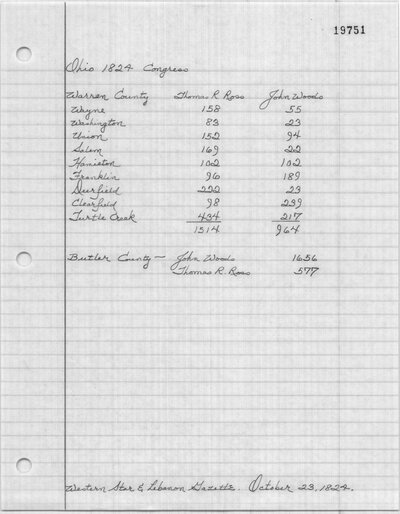 19751
Ohio 1824 Congress
Warren County Thomas R Ross John Woods
Wayne 158 55
Washington 83 23
Union 152 94
Salem 169 22
Hamilton 102 102
Franklin 96 189
Deerfield 222 23
Clearfield 98 239
Turtle Creek 434 217
1514 964
Butler County — John Woods 1656
Thomas R Ross 577
Western Star & Lebanon Gazette. October 23, 1824.